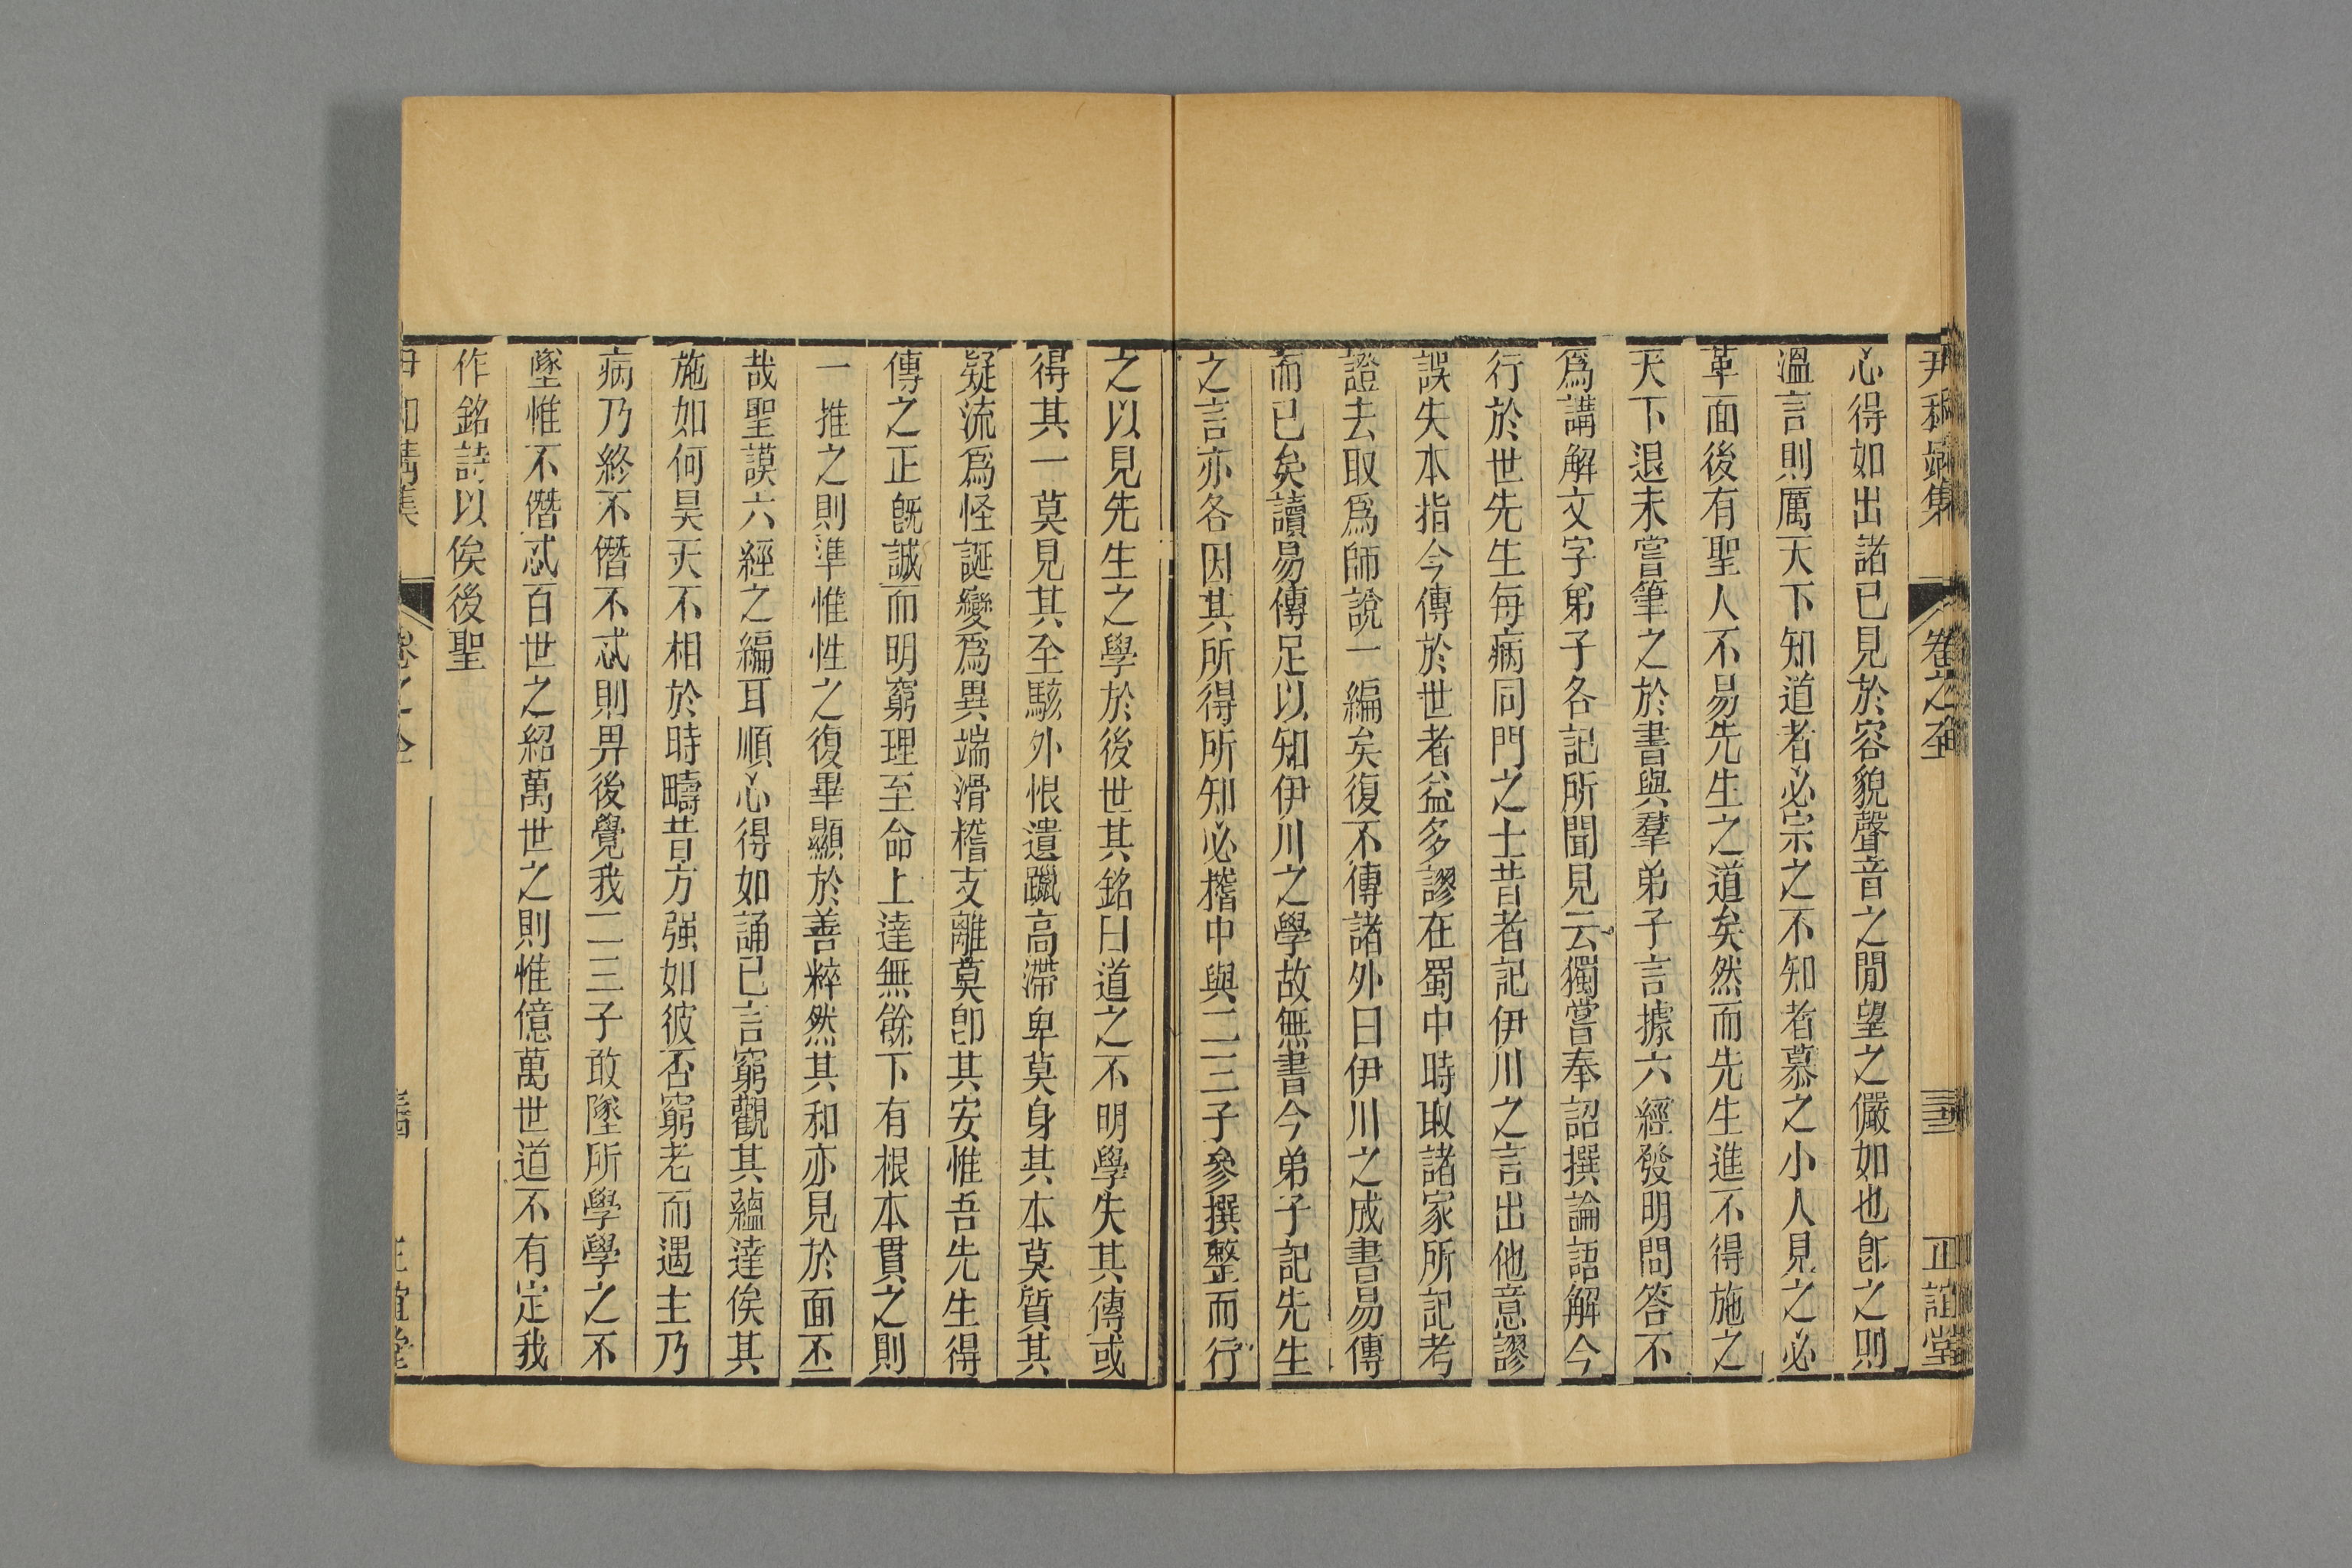 尹和靖集 卷之全 三十三 正誼堂
心得如出諸己見於容貌聲音之閒望之儼如也卽之則
溫言則厲天下知道者必宗之不知者慕之小人見之必
革面後有聖人不易先生之道矣然而先生進不得施之
天下退未嘗筆之於書與羣弟子言據六經發明問答不
爲講解文字弟子各記所聞見云獨嘗奉詔撰論語解今
行於世先生每病同門之士昔者記伊川之言出他意謬
誤失本指今傳於世者益多謬在蜀中時取諸家所記考
證去取爲師說一編矣復不傳諸外曰伊川之成書易傳
而已矣讀易傳足以知伊川之學故無書今弟子記先生
之言亦各因其所得所知必稽中與二三子參撰整而行
之以見先生之學於後世其銘曰道之不明學失其傳或
得其一莫見其至駭外恨遺躐高滯卑莫身其本莫質其
疑流爲怪誕變爲異端滑稽支離莫卽其安惟吾先生得
傳之正旣誠而明窮理至命上達無餘下有根本貫之則
一推之則準惟性之復畢顯於善粹然其和亦見於面丕
哉聖謨六經之編耳順心得如誦己言窮觀其蘊達俟其
施如何昊天不相於時疇昔方强如彼否窮老而遇主乃
病乃終不僭不忒則畀後覺我二三子敢墜所學學之不
墜惟不僭忒百世之紹萬世之則惟億萬世道不有定我
作銘詩以俟後聖
尹和靖集 卷之全 正誼堂